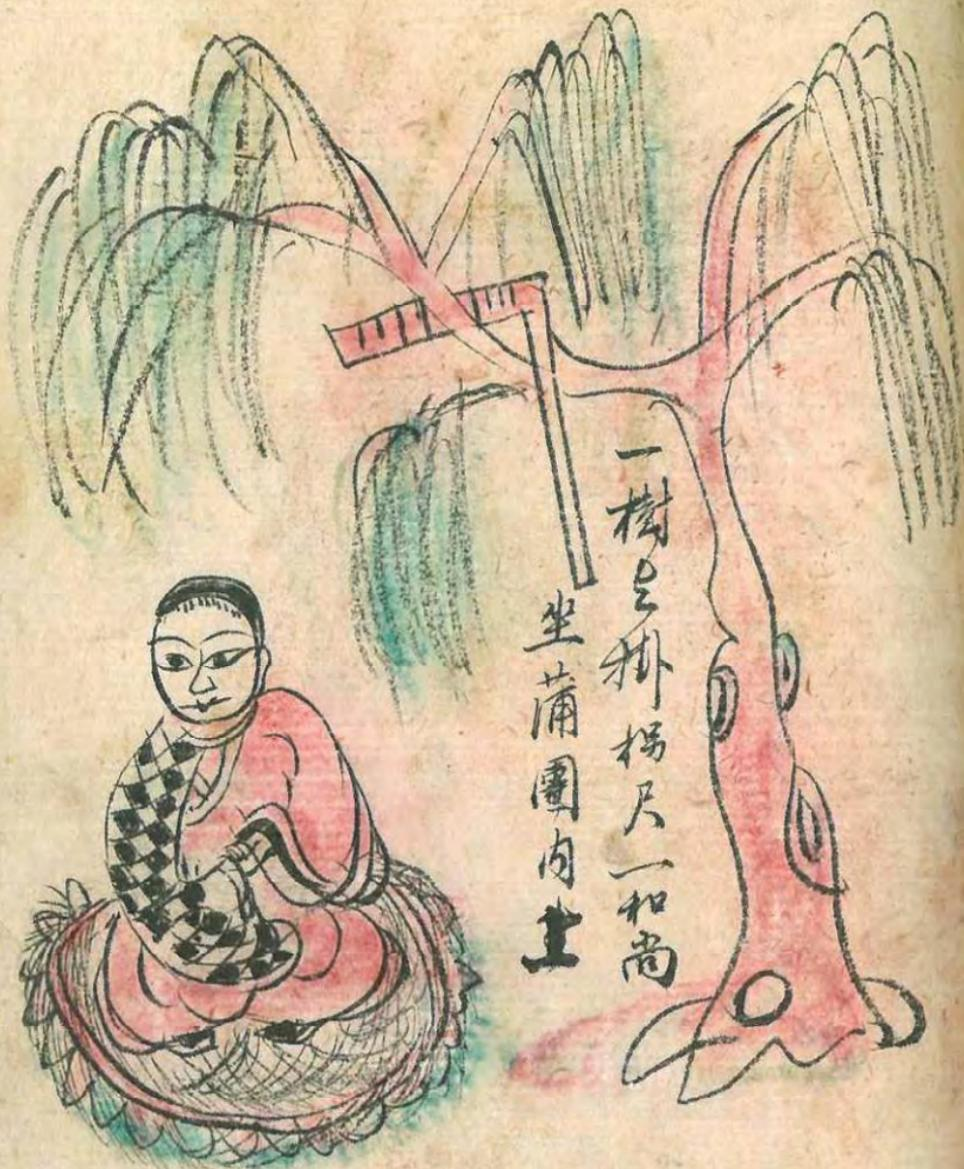 一樹上掛拐尺一和尚
坐蒲團内土